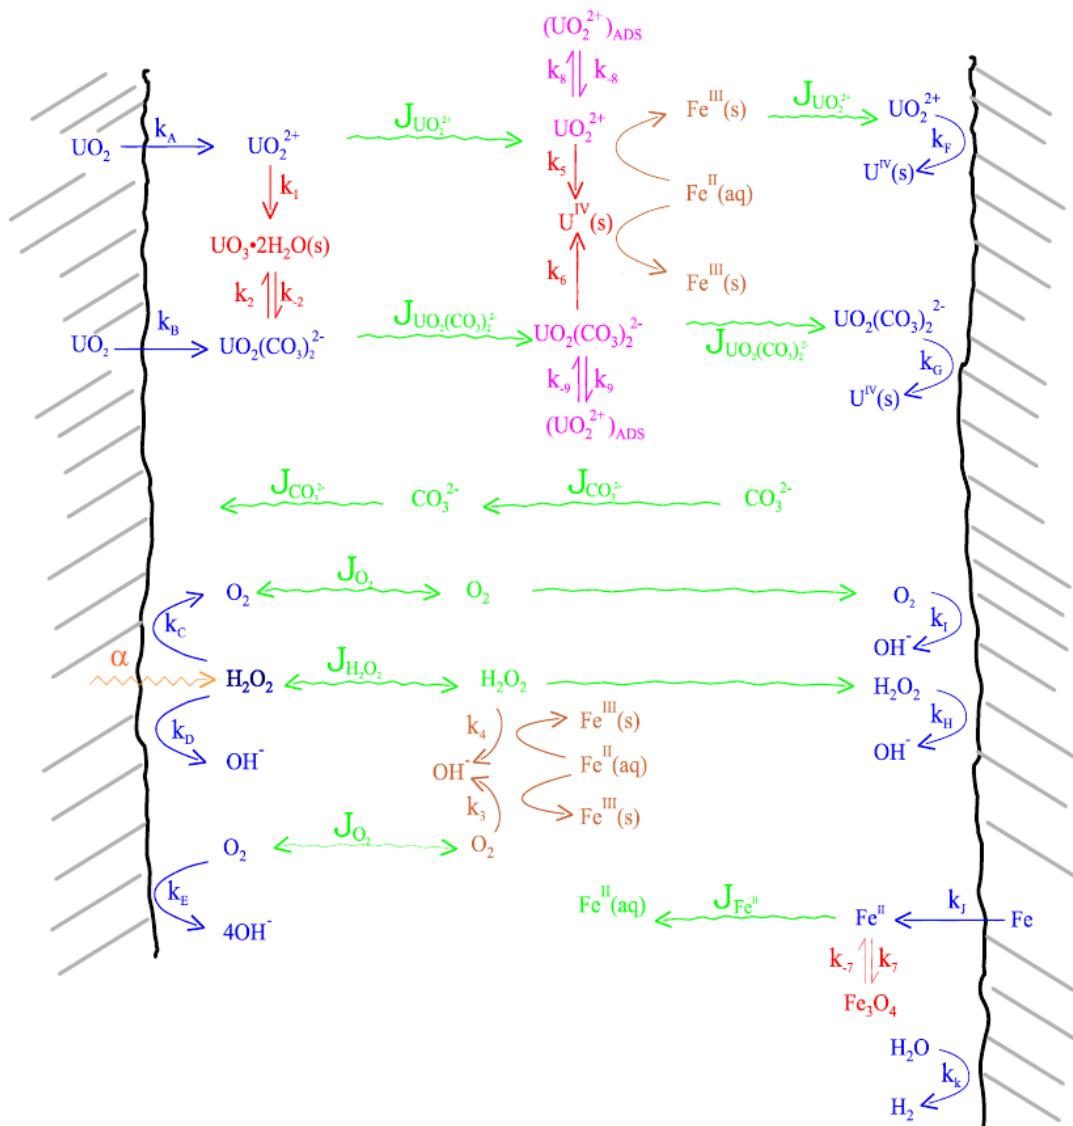 (UO₂²⁺)ADS
k₈ k₋₈
UO₂ kA UO₂²⁺ J UO₂²⁺ UO₂²⁺ Feᴵᴵᴵ(s) J UO₂²⁺ UO₂²⁺
k₁ k₅ Feᴵᴵ(aq) kF
Uᴵⱽ(s) Uᴵⱽ(s)
UO₃•2H₂O(s) Feᴵᴵᴵ(s)
k₂ k₋₂ k₆
UO₂ kB UO₂(CO₃)₂²⁻ J UO₂(CO₃)₂²⁻ UO₂(CO₃)₂²⁻ J UO₂(CO₃)₂²⁻ UO₂(CO₃)₂²⁻
k₋₉ k₉ kG
(UO₂²⁺)ADS Uᴵⱽ(s)
J CO₃²⁻ CO₃²⁻ J CO₃²⁻ CO₃²⁻
O₂ J O₂ O₂ O₂
kC kI
OH⁻
α H₂O₂ J H₂O₂ H₂O₂ H₂O₂
kD k₄ Feᴵᴵᴵ(s) kH
OH⁻ OH⁻ Feᴵᴵ(aq) OH⁻
k₃ Feᴵᴵᴵ(s)
O₂ J O₂ O₂
kE
4OH⁻ Feᴵᴵ(aq) J Feᴵᴵ Feᴵᴵ kJ Fe
k₋₇ k₇
Fe₃O₄
H₂O
kk
H₂